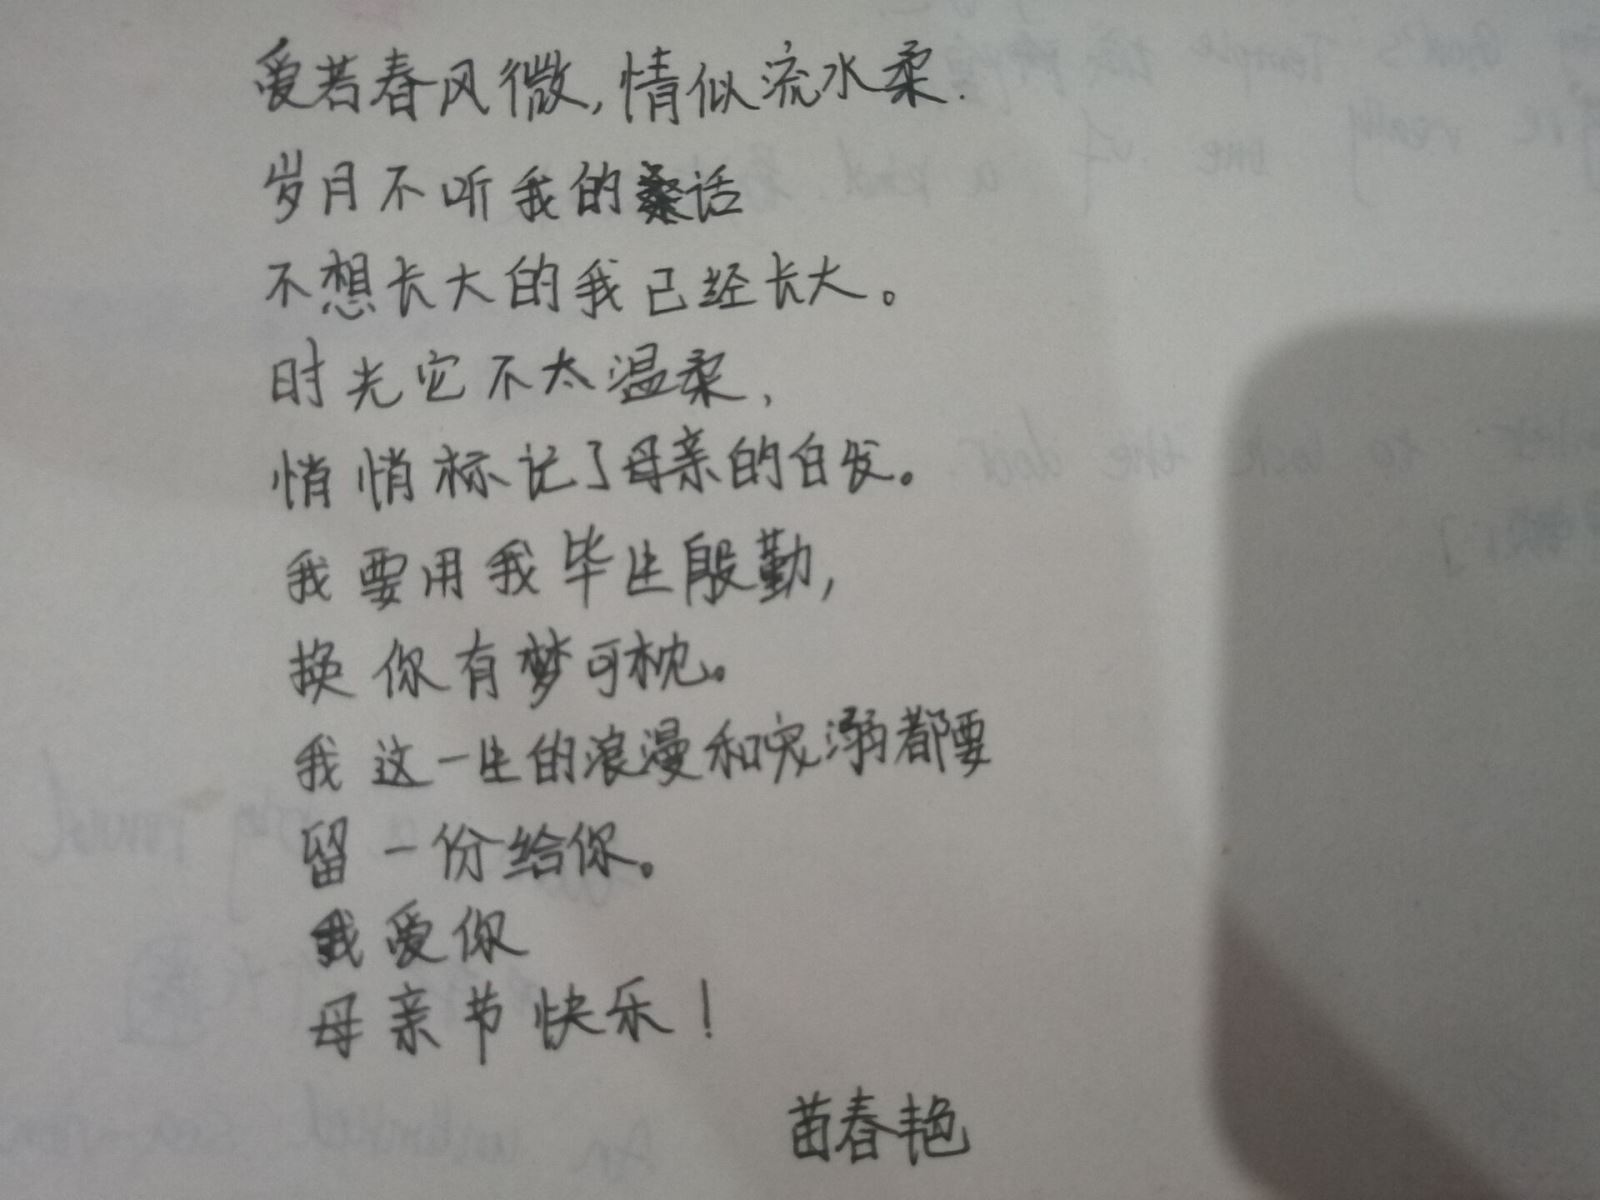 爱若春风微,情似流水柔.
岁月不听我的话
不想长大的我已经长大。
时光它不太温柔,
悄悄标记了母亲的白发。
我要用我毕生殷勤,
换你有梦可枕。
我这一生的浪漫和宠溺都要
留一份给你。
我爱你
母亲节快乐!
苗春艳